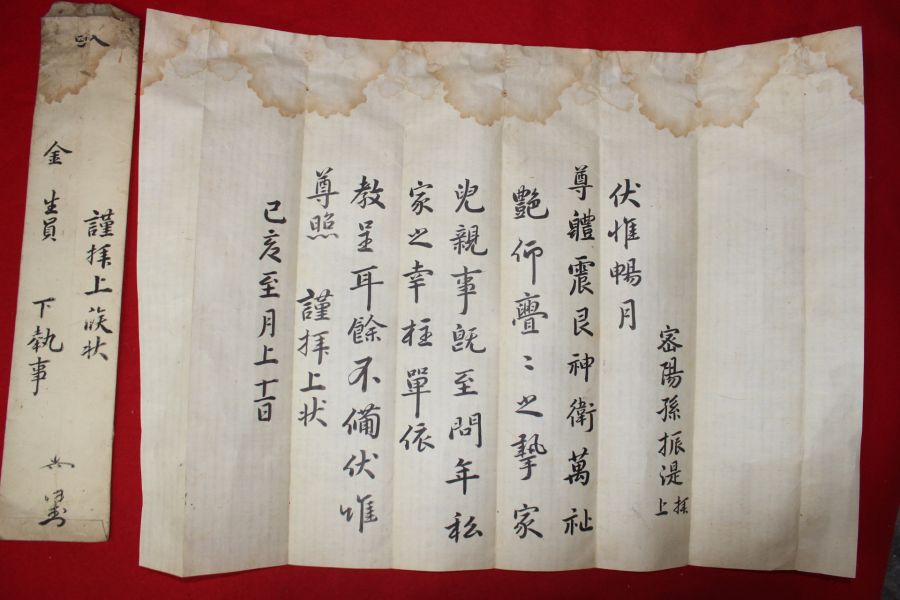 密陽孫振湜 拜上
伏惟暢月
尊體震艮神衛萬祉
艷仰亹〻之摯家
兒親事旣至問年私
家之幸柱單依
敎呈耳餘不備伏惟
尊照 謹拜上狀
己亥至月上十一日
謹拜上候狀
金 生員 下執事